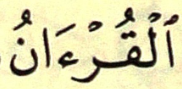 ٱلْقُرْءَانُ